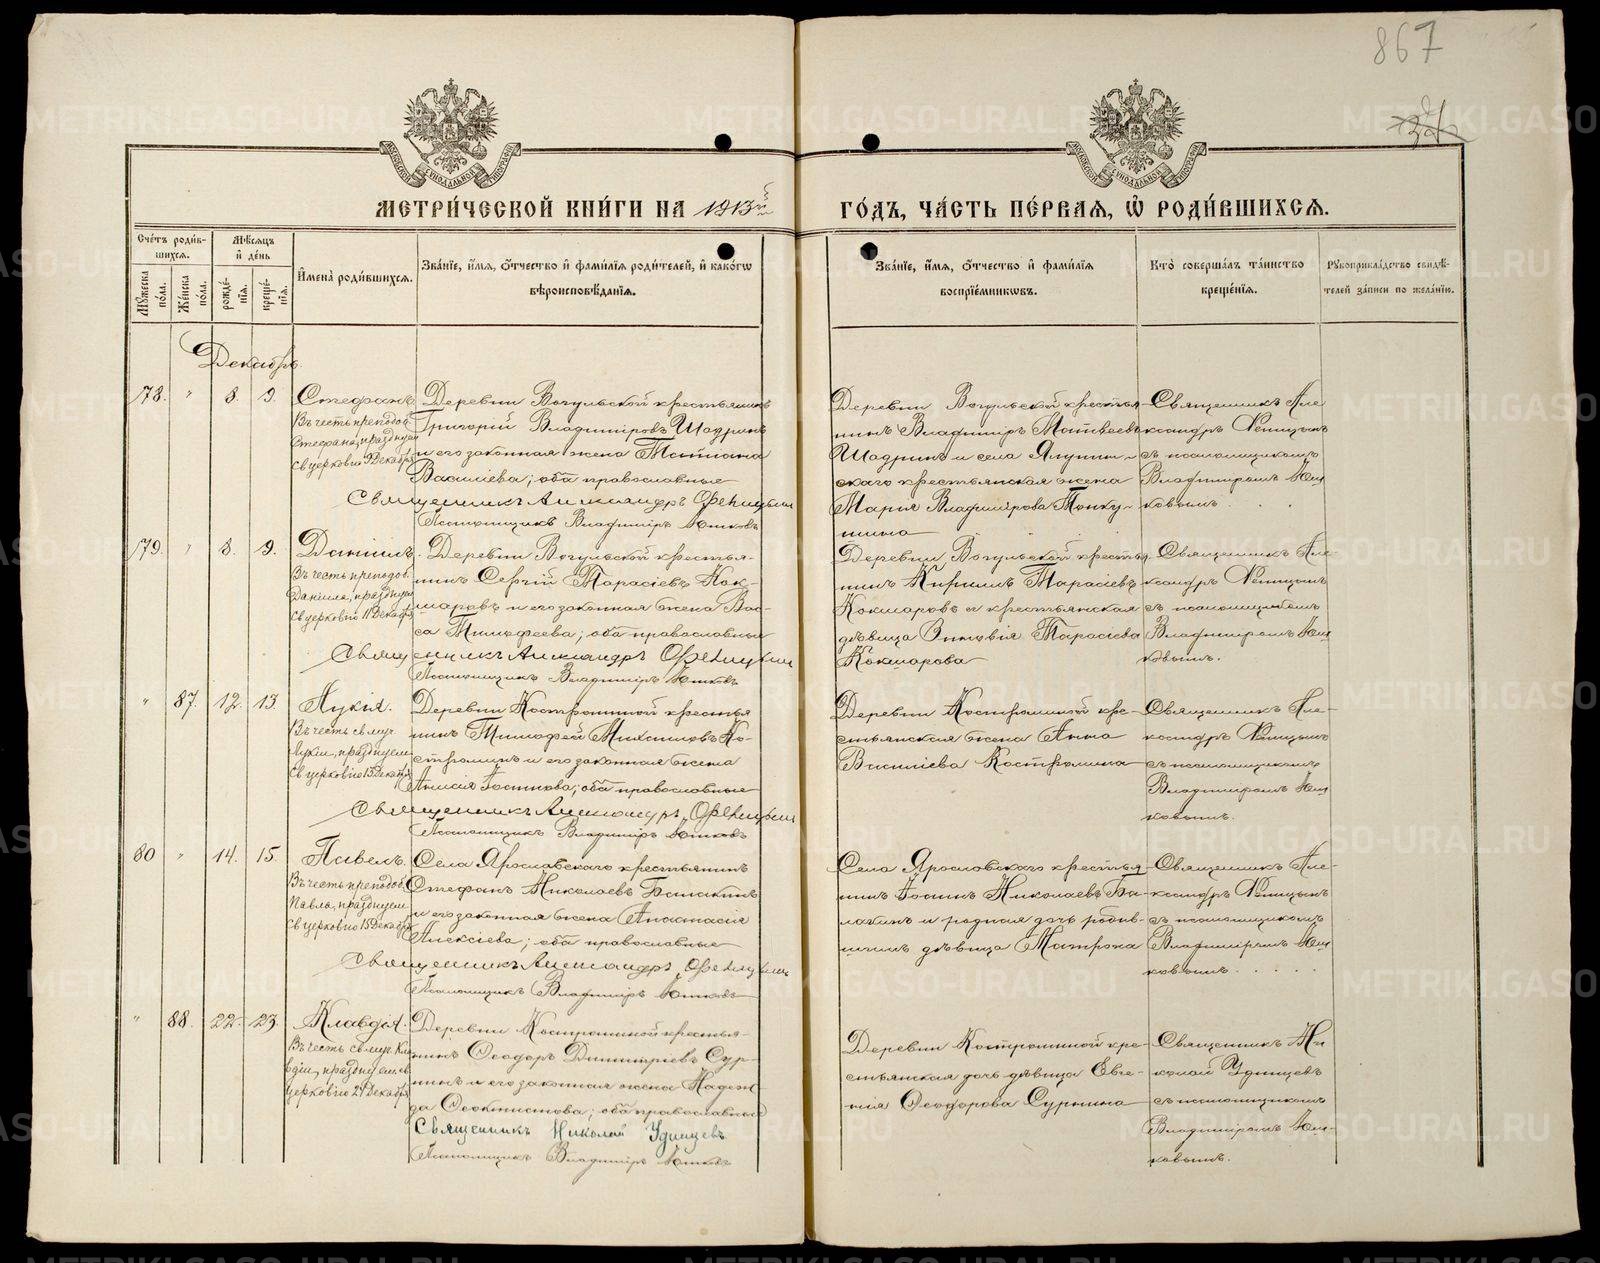 867
МЕТРИ́ЧЕСКОЙ КНИ́ГИ НА 1913й ГО́ДЪ, ЧА́СТЬ ПЕ́РВАЯ, Ѿ РОДИ́ВШИХСѦ.
Сче́тъ роди́в-
шихсѧ.
Мѣ́сѧцъ
и҆ де́нь
Мꙋ́жеска по́ла.
Же́нска по́ла.
рожде́-
нїѧ.
креще́-
нїѧ.
И҆мена̀ роди́вшихсѧ.
Зва́нїе, и҆́мѧ, ѻ҆́тчество и҆ фами́лїѧ роди́телей, и҆ како́гѡ
вѣроисповѣ́данїѧ.
Зва́нїе, и҆́мѧ, ѻ҆́тчество и҆ фами́лїѧ
воспрїе́мникѡвъ.
Кто̀ соверша́лъ та́инство
креще́нїѧ.
Рꙋкоприкла́дство свидѣ́-
телей за́писи по жела́нїю.
Декабрь.
78. " 8. 9.
Стефанъ
Въ честь преподоб.
Стефана, празднуем
Св церковію 9 Декабря
Деревни Вогульской крестьянинъ
Григорій Владиміровъ Шадринъ
и его законная жена Татіана
Василіева; оба православные
Священникъ Александръ
Псаломщикъ Владиміръ Юшковъ
Деревни Вогульской крестья-
нинъ Владиміръ Матвеевъ
Шадринъ и села
скаго крестьянская жена
Марія Владимірова
Священникъ Але-
ксандръ
съ псаломщикомъ
Владиміромъ Юш-
ковымъ.
79. " 8. 9.
Даніилъ.
Въ честь преподоб.
Даніила, празднуем
Св церковію 11 Декабря
Деревни Вогульской крестья-
нинъ Сергій Тарасіевъ Кок-
шаровъ и его законная жена Вас-
са Тимофеева; оба православные
Священникъ Александръ
Псаломщикъ Владиміръ Юшковъ
Деревни Вогульской крестья-
нинъ Кириллъ Тарасіевъ
Кокшаровъ и крестьянская
дѣвица Тарасіева
Кокшарова
Священникъ Але-
ксандръ
съ псаломщикомъ
Владиміромъ Юш-
ковымъ.
" 87. 12. 13.
Лукія.
Въ честь св муч
Лукіи, празднуем
Св церковію 13 Декабря
Деревни Костромкиной крестья
нинъ Тимофей Михаиловъ Ко-
стромин и его законная жена
Анисія; оба православные
Священникъ Александръ
Псаломщикъ Владиміръ Юшковъ
Деревни Костроминой кре-
стьянская жена Анна
Василіева Костромина
Священникъ Але-
ксандръ
съ псаломщикомъ
Владиміромъ Юш-
ковымъ.
80 " 14. 15.
Павелъ.
Въ честь преподоб.
Павла, празднуем
Св церковію 15 Декабря
Села Ярославскаго крестьянинъ
Стефанъ Николаевъ Балакинъ
и его законная жена Анастасія
Алексіева; оба православные
Священникъ Александръ
Псаломщикъ Владиміръ Юшковъ
Села Ярославскаго крестья
нинъ Іоаннъ Николаевъ Ба-
лакинъ и родная дочь родив-
шимъ дѣвица Матрона
Священникъ Але-
ксандръ
съ псаломщикомъ
Владиміромъ Юш
ковымъ.
" 88. 22. 23.
Клавдія.
Въ честь св муч Кла
вдіи, празднуем св
церковію 24 Декабря
Деревни Костроминой крестья-
нинъ Ѳеодоръ Димитріевъ Сур-
нинъ и его законная жена Надеж
да Ѳеоктистова; оба православные
Священникъ Николай Удинцевъ
Псаломщикъ Владиміръ Юшковъ
Деревни Костроминой кре-
стьянская дочь дѣвица Евге-
нія Ѳеодорова Сурнина
Священникъ Ни
колай Удинцевъ
съ псаломщикомъ
Владиміромъ Юш-
ковымъ.
METRIKI.GASO-URAL.RU